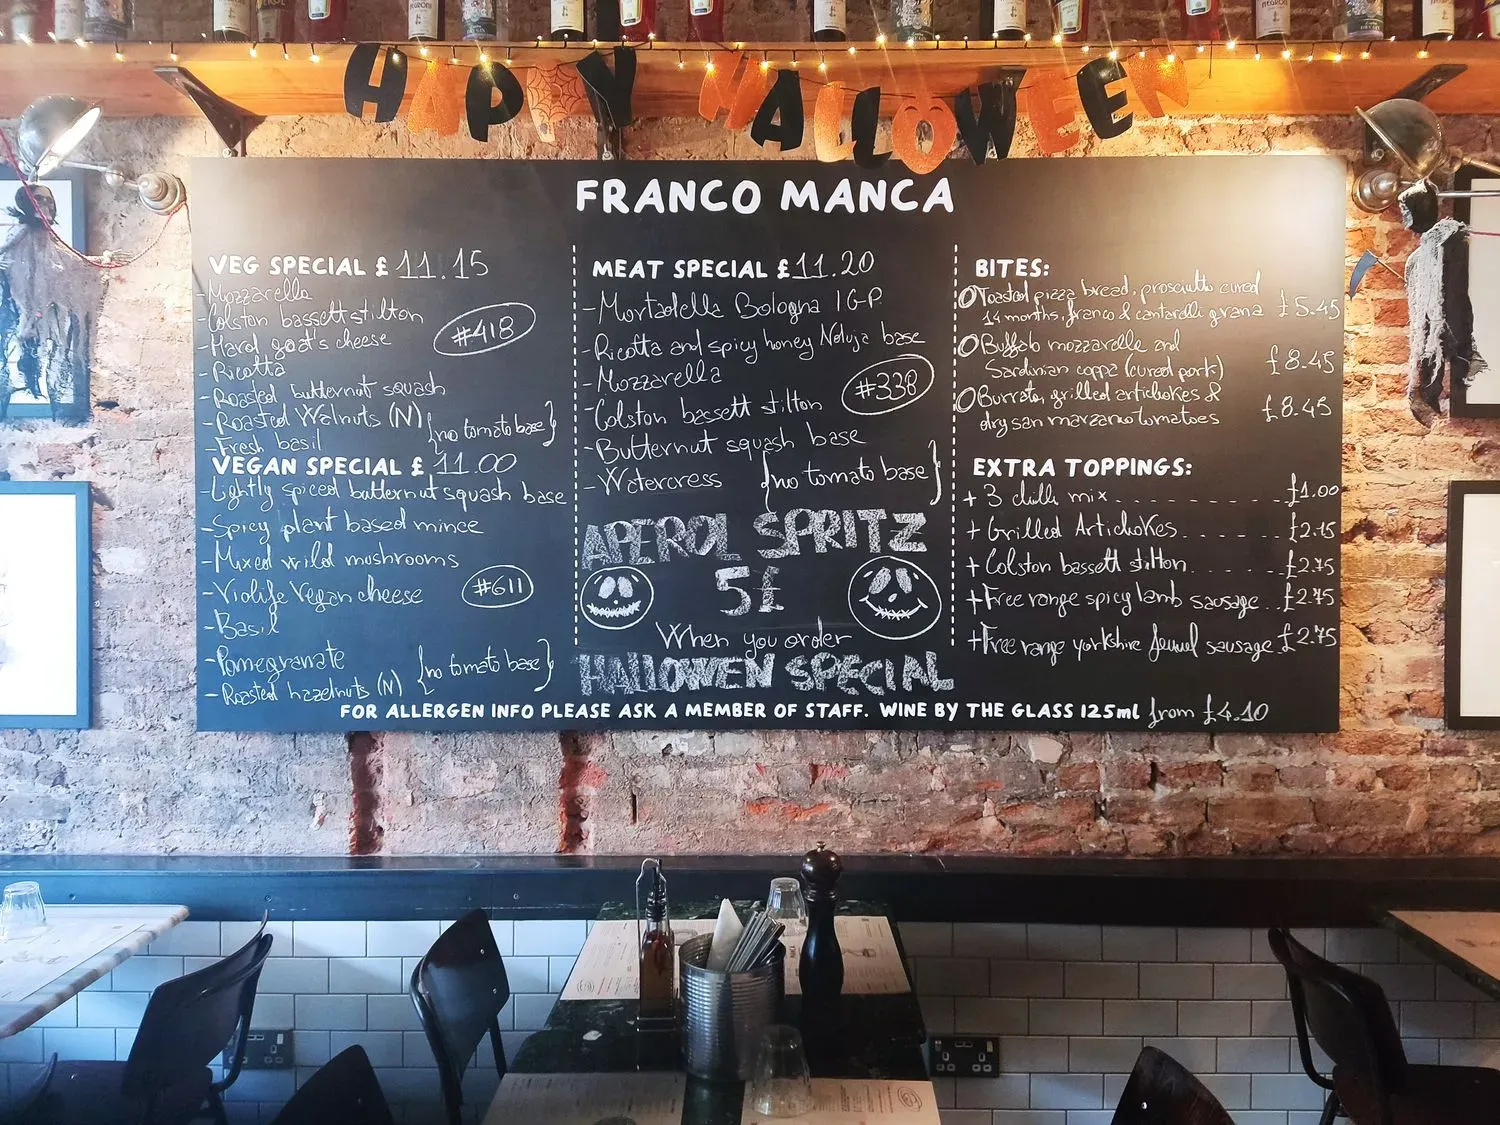 HAPPY HALLOWEEN
FRANCO MANCA
VEG SPECIAL £ 11.15
-Mozzarella
-Colston bassett stilton
-Hard goat's cheese
#418
-Ricotta
-Roasted butternut squash
-Roasted Walnuts (N)
-Fresh basil
{no tomato base}
VEGAN SPECIAL £ 11.00
-Lightly spiced butternut squash base
-Spicy plant based mince
-Mixed wild mushrooms
-Violife Vegan cheese
#611
-Basil
-Pomegranate
-Roasted hazelnuts (N)
{no tomato base}
MEAT SPECIAL £11.20
-Mortadella Bologna IGP
-Ricotta and spicy honey Nduja base
-Mozzarella
#338
-Colston bassett stilton
-Butternut squash base
-Watercress
{no tomato base}
APEROL SPRITZ
5£
When you order
HALLOWEN SPECIAL
BITES:
O Toasted pizza bread, prosciutto cured
14 months, franco & cantarelli grana £5.45
O Buffalo mozzarella and
Sardinian coppa (cured pork) £8.45
O Burrata, grilled artichokes &
dry san marzano tomatoes £8.45
EXTRA TOPPINGS:
+ 3 chilli mix............£1.00
+ Grilled Artichokes......£2.15
+ Colston bassett stilton.....£2.75
+ Free range spicy lamb sausage..£2.75
+ Free range yorkshire fennel sausage.£2.75
FOR ALLERGEN INFO PLEASE ASK A MEMBER OF STAFF. WINE BY THE GLASS 125ml from £4.10